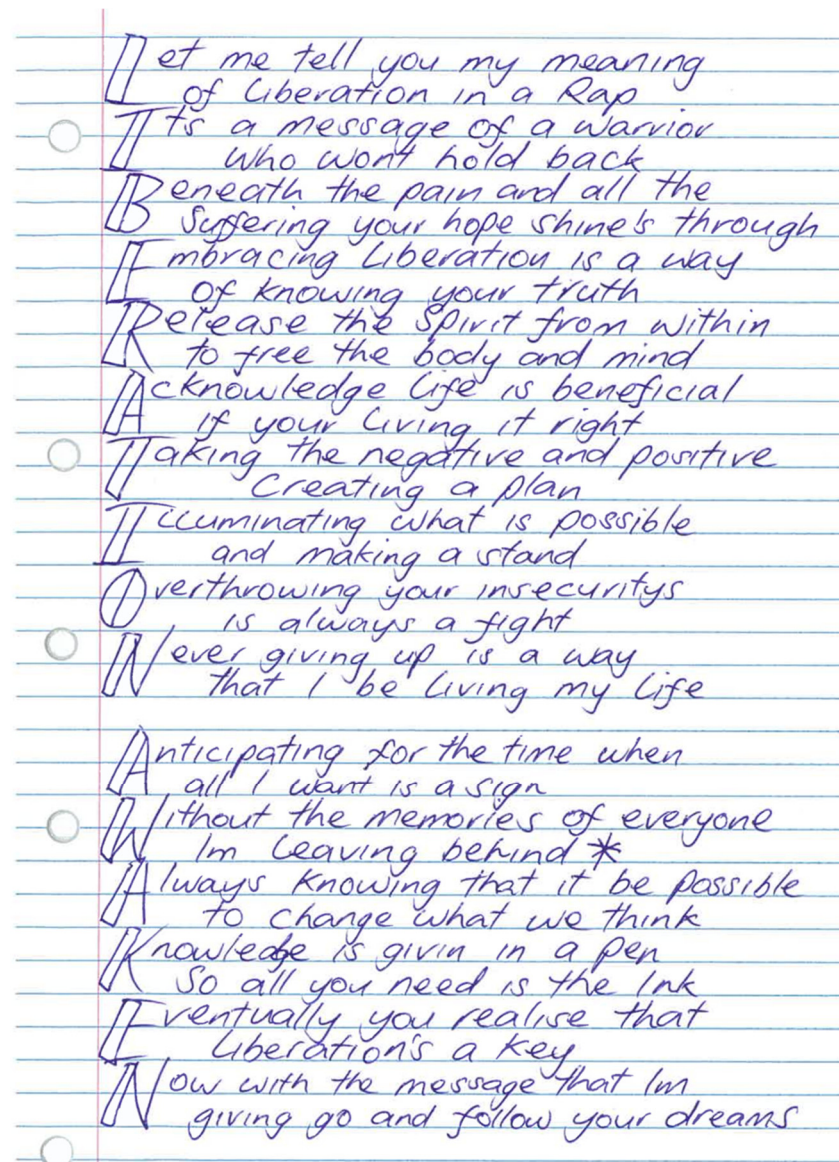 Let me tell you my meaning
of Liberation in a Rap
Its a message of a warrior
who wont hold back
Beneath the pain and all the
Suffering your hope shine's through
Embracing Liberation is a way
of knowing your truth
Release the Spirit from within
to free the body and mind
Acknowledge Life is beneficial
if your Living it right
Taking the negative and positive
Creating a plan
Illuminating what is possible
and making a stand
Overthrowing your insecuritys
is always a fight
Never giving up is a way
that I be Living my Life
Anticipating for the time when
all I want is a sign
Without the memories of everyone
Im Leaving behind *
Always Knowing that it be possible
to change what we think
Knowledge is givin in a pen
So all you need is the Ink
Eventually you realise that
Liberation's a Key
Now with the message that Im
giving go and follow your dreams